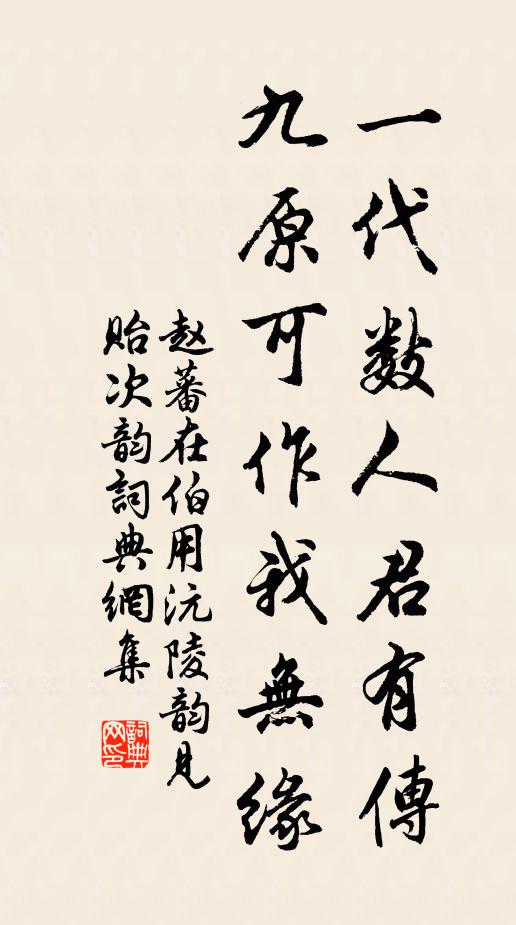 一代数人君有傳
九原可作我無緣
赵蕃在伯用沅陵韵見
貽次韵詞典網集
詞典網印